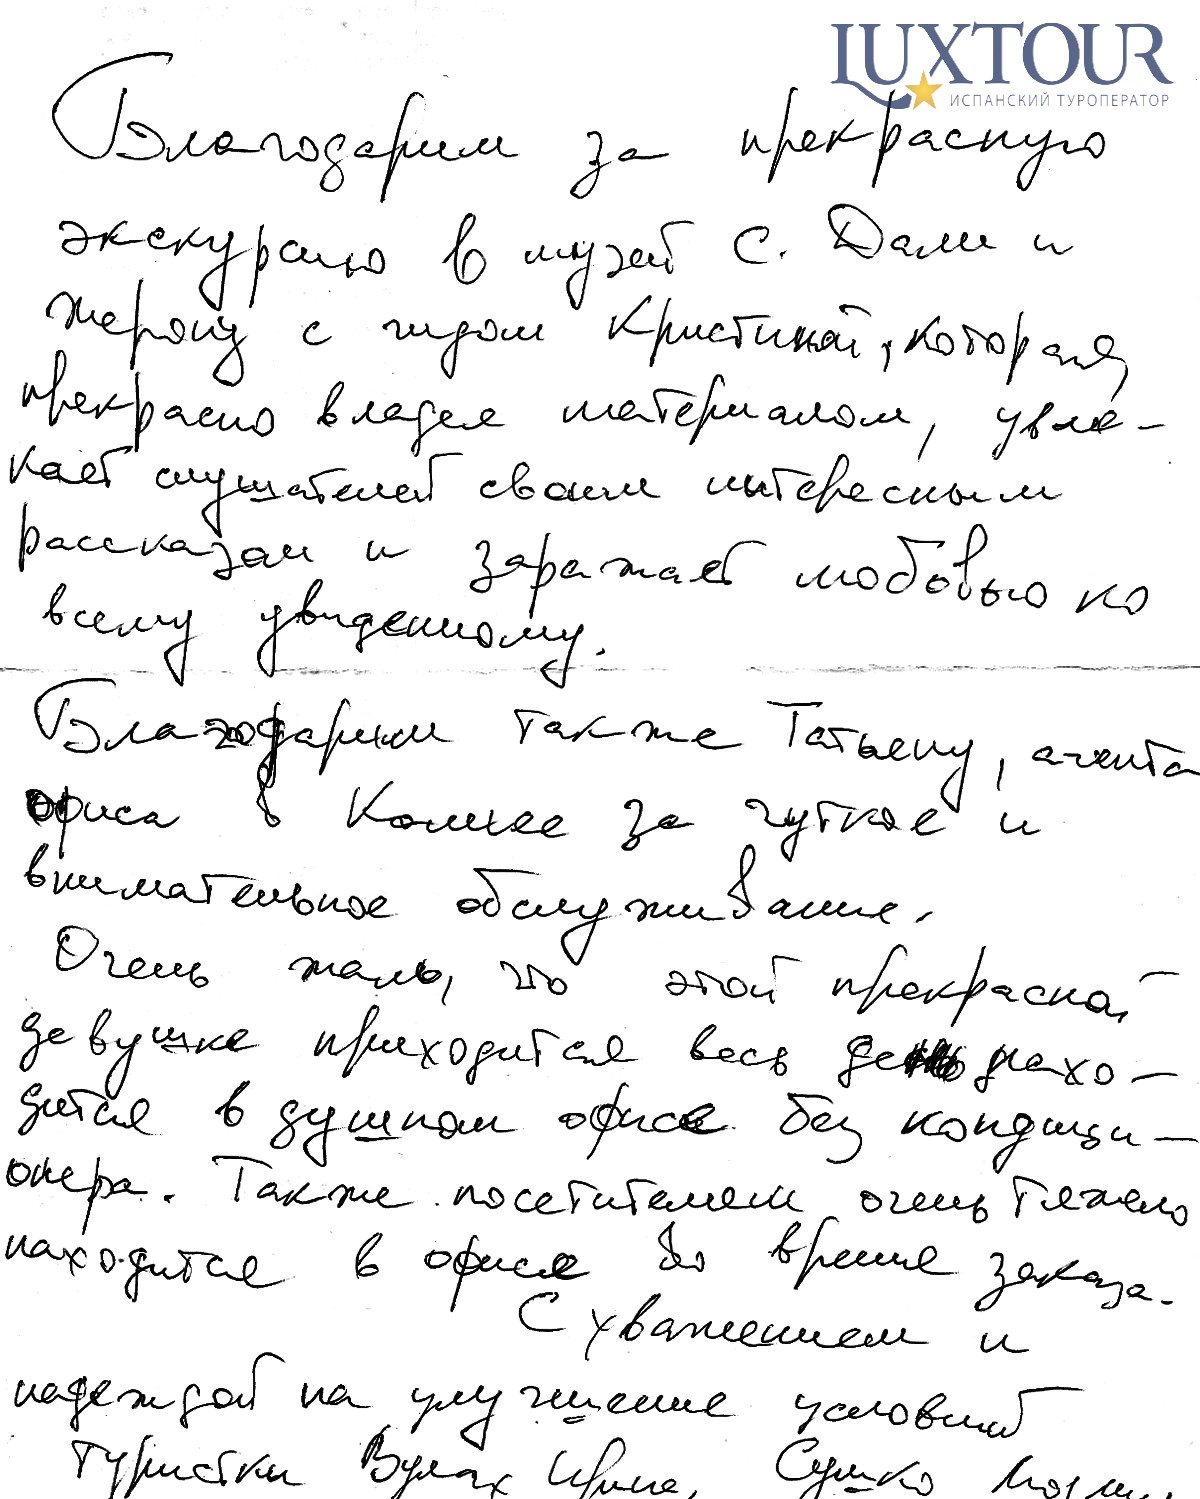 LUXTOUR
ИСПАНСКИЙ ТУРОПЕРАТОР
Благодарим за прекрасную
экскурсию в музей С. Дали и
Жерону с гидом Кристиной, которая
прекрасно владея материалом, увле-
кает слушателей своим интересным
рассказом и заражает любовью ко
всему увиденному.
Благодарим также Татьяну, агента
офиса в Калелье за чуткое и
внимательное обслуживание.
Очень жаль, что этой прекрасной
девушке приходится весь день нахо-
дится в душном офисе без кондици-
онера. Также посетителям очень тяжело
находится в офисе во время заказа.
С уважением и
надеждой на улучшение условий
Туристки Вулах Ирина, Сушко